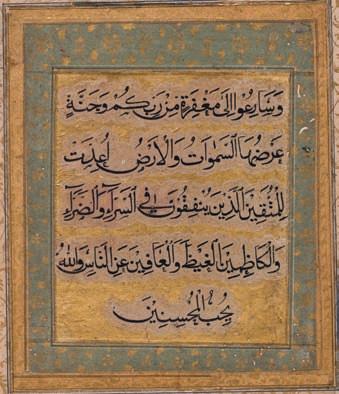 وَسَارِعُوا إِلَى مَغْفِرَةٍ مِنْ رَبِّكُمْ وَجَنَّةٍ
عَرْضُهَا السَّمٰوَاتُ وَالْأَرْضُ أُعِدَّتْ
لِلْمُتَّقِينَ الَّذِينَ يُنْفِقُونَ فِي السَّرَّاءِ وَالضَّرَّاءِ
وَالْكَاظِمِينَ الْغَيْظَ وَالْعَافِينَ عَنِ النَّاسِ وَاللّٰهُ
يُحِبُّ الْمُحْسِنِينَ